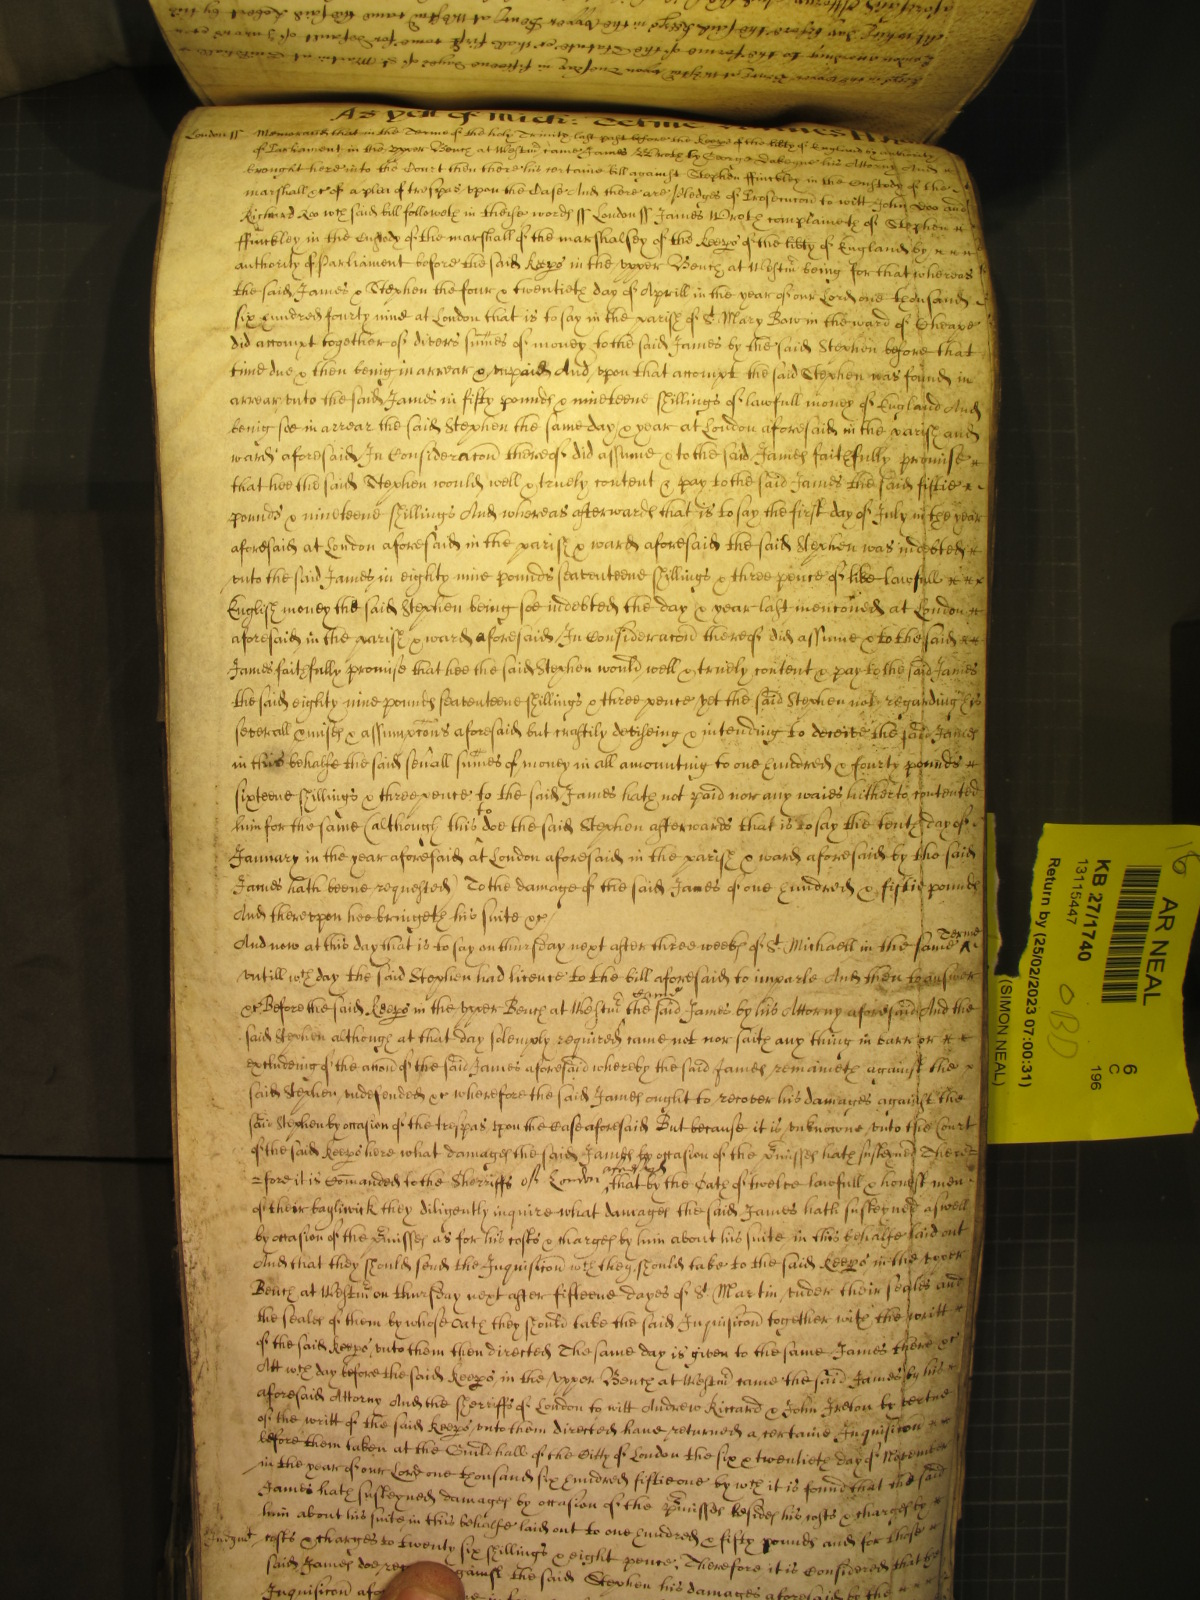 As yett of Mich: Terme
London ss Memorand that in the Terme of the holy Trinity last past before the Keeps of the libty of England by authority
of Parliament in the upper Bench at Westmr came James Wroth by George his Attorny And
brought here into the Court then there his certaine bill against Stephen Ffinckley in the Custody of the
marshall &c of a plea of trespas upon the Case And there are Pledges of Prosecucon to witt John Doo and
Richard Roo wch said bill followeth in theise words ss London ss James Wroth complaineth of Stephen
Ffinckley in the Custody of the marshall of the marshalsey of the Keeps of the libty of England by
authority of Parliament before the said Keeps in the upper Bench at Westmr being for that whereas
the said James & Stephen the four & twentieth day of Aprill in the year of our Lord one thousand
six hundred fourty nine at London that is to say in the parish of St Mary Bow in the ward of Cheape
did accompt together of divers sumes of money to the said James by the said Stephen before that
time due & then being in arrear & unpaid And upon that accompt the said Stephen was found in
arrear unto the said James in fifty pounds & nineteene shillings of lawfull money of England And
being soe in arrear the said Stephen the same day & year at London aforesaid in the parish and
ward aforesaid In Consideracon thereof did assume & to the said James faithfully promise
that hee the said Stephen would well & truely content & pay to the said James the said fiftie
pounds & nineteene shillings And whereas afterwards that is to say the first day of July in the year
aforesaid at London aforesaid in the parish & ward aforesaid the said Stephen was indebted
unto the said James in eighty nine pounds seaventeene shillings & three pence of like lawfull
English money the said Stephen being soe indebted the day & year last menconed at London
aforesaid in the parish & ward aforesaid In Consideracon thereof did assume & to the said
James faithfully promise that hee the said Stephen would well & truely content & pay to the said James
the said eighty nine pounds seaventeene shillings & three pence yet the said Stephen not regarding his
severall & assumpcons aforesaid but craftily devising & intending to deceive the said James
in this behalfe the said sevall sumes of money in all amounting to one hundred & fourty pounds
sixteene shillings & three pence to the said James hath not paid nor any waies hitherto contented
him for the same (although this to doe the said Stephen afterwards that is to say the tenth day of
January in the year aforesaid at London aforesaid in the parish & ward aforesaid by the said
James hath beene requested) To the damage of the said James of one hundred & fiftie pounds
And thereupon hee bringeth his suite &c
And now at this day that is to say on thursday next after three weeks of St Michaell in the same Terme
untill wch day the said Stephen had licence to the bill aforesaid to imparle And then to answer
&c Before the said Keeps in the upper Bench at Westmr came the said James by his Attorny aforesaid And the
said Stephen although at that day solemply required came not nor saith any thing in barr or
of the accon of the said James aforesaid whereby the said James remaineth against the
said Stephen undefended &c wherefore the said James ought to recover his damages against the
said Stephen by occasion of the trespas upon the Case aforesaid But because it is unknowne unto the Court
of the said Keeps here what damages the said James by occasion of the pmisses hath susteyned There
fore it is comanded to the Sherriffs of London that by the Oath of twelve lawfull & honest men
of their bayliwick they diligently inquire what damages the said James hath susteyned aswell
by occasion of the pmisses as for his costs & charges by him about his suite in this behalfe laid out
And that they should send the Inquisicon wch they should take to the said Keeps in the upper
Bench at Westmr on thursday next after fifteene dayes of St Martin under their seales and
the seales of them by whose Oath they should take the said Inquisicon together with the writt
of the said Keeps unto them then directed The same day is given to the same James there &c
Att wch day before the said Keeps in the Upper Bench at Westmr came the said James by his
aforesaid Attorny And the Sherriffs of London to witt Andrew Riccard & John Ireton by vertue
of the writt of the said Keeps unto them directed have returned a certaine Inquisicon
before them taken at the Guildhall of the Citty of London the six & twentieth day of November
in the year of our Lord one thousand six hundred fiftie one by wch it is found that the said
James hath susteyned damages by occasion of the pmisses besides his costs & charges by
him about his suite in this behalfe laid out to one hundred & fifty pounds and for those
costs & charges to twenty six shillings & eight pence; Therefore it is Considered that the
said James doe against the said Stephen his damages aforesaid by the
Inquisicon
AR NEAL
6
C
196
KB 27/1740
13115447
Return by (25/02/2023 07:00:31)
(SIMON NEAL)
OBD